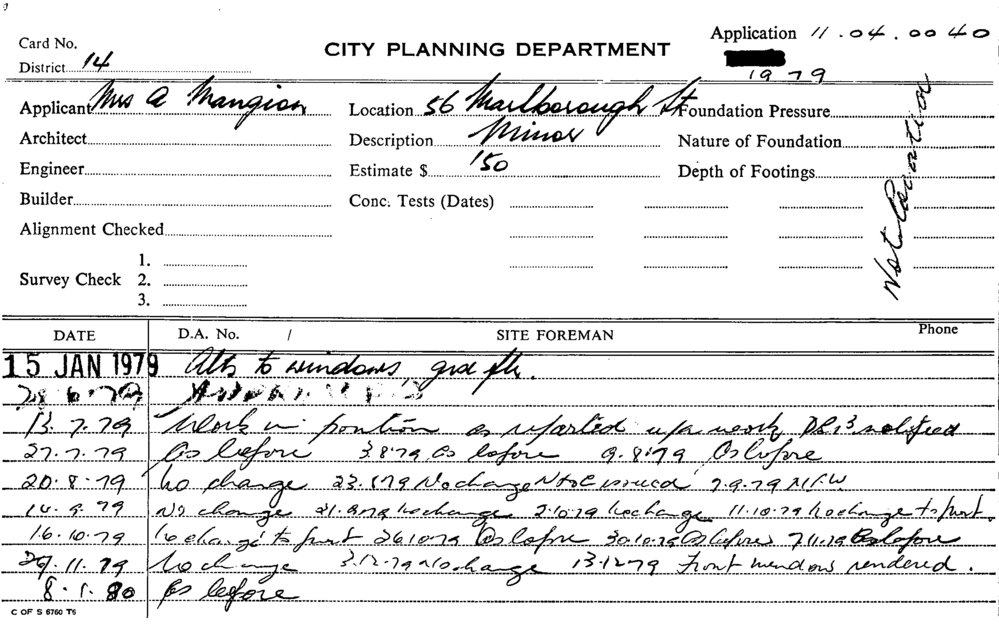 Card No.
CITY PLANNING DEPARTMENT
Application 11.04.0040
District 14
1979
Applicant Mrs A Mangion
Location 56 Marlborough St
Foundation Pressure
Architect
Description Minor
Nature of Foundation
Engineer
Estimate $ 150
Depth of Footings
Builder
Conc. Tests (Dates)
Alignment Checked
Survey Check
1.
2.
3.
DATE D.A. No. / SITE FOREMAN Phone
15 JAN 1979 Alts to windows, grd flr.
28.6.79
13.7.79 Work in position as reported notified
27.7.79 As before 3.8.79 As before 9.8.79 As before
20.8.79 No change 23.8.79 No change issued 7.9.79
14.9.79 No change 21.9.79 No change 2.10.79 No change 11.10.79 No change to front.
16.10.79 No change to front 26.10.79 As before 30.10.79 As before 7.11.79 As before
29.11.79 No change 3.12.79 No change 13.12.79 Front windows rendered.
8.1.80 As before
C OF S 6760 T6